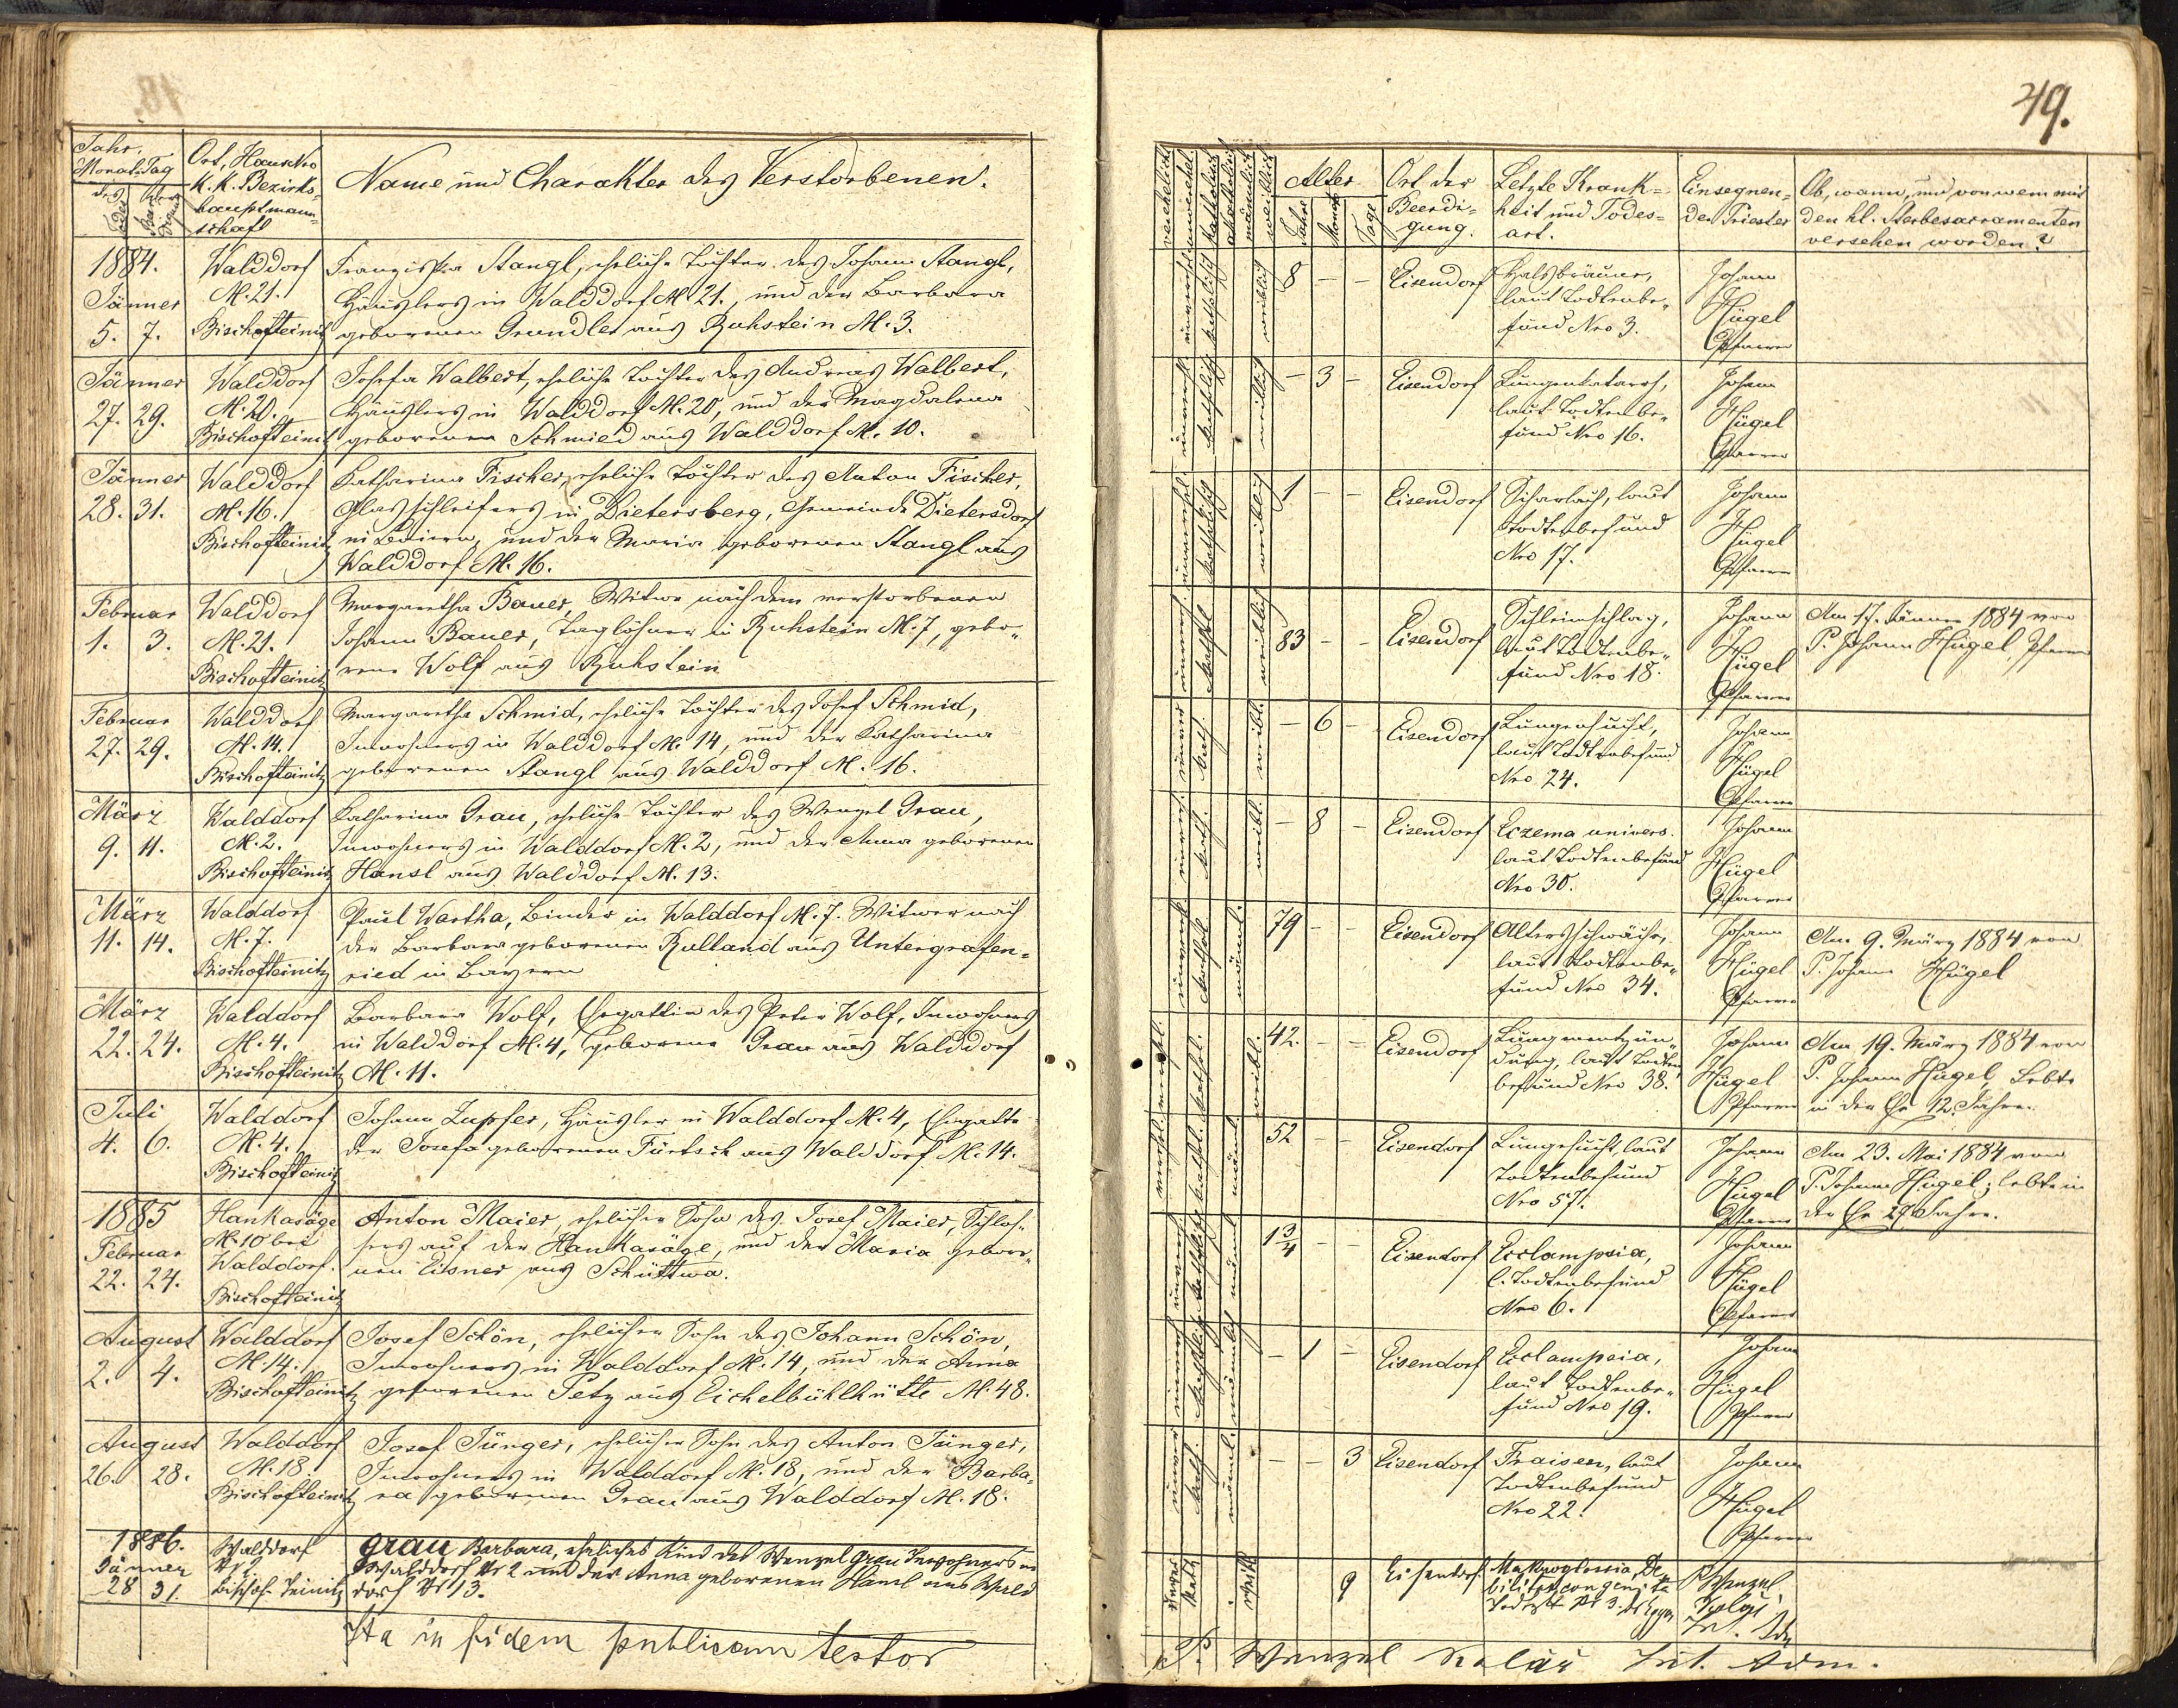 49.
Jahr.
Monat. Tag
des
Todes
der
Ort, Haus Nro
K. K. Bezirks-
hauptmann-
schaft
Name und Charakter des Verstorbenen.
1884.
Jänner
5. 7.
Walddorf
N. 21.
Bischofteinitz
Franziska Stangl, eheliche Tochter des Johann Stangl,
Häuslers in Walddorf N 21., und der Barbara
geborenen Grundler aus Ruhstein N. 3.
Jänner
27. 29.
Walddorf
N. 20.
Bischofteinitz
Josefa Walbert, eheliche Tochter des Andreas Walbert,
Häuslers in Walddorf N. 20, und der Magdalena
geborenen Schmied aus Walddorf N. 10.
Jänner
28. 31.
Walddorf
N. 16.
Bischofteinitz
Katharina Fischer, eheliche Tochter des Anton Fischer,
Glasschleifers in Dietersberg, Gemeinde Dietersdorf
in Baiern, und der Maria geborenen Stangl aus
Walddorf N. 16.
Februar
1. 3.
Walddorf
N. 21.
Bischofteinitz
Margaretha Bauer, Witwe nach dem verstorbenen
Johann Bauer, Taglöhner in Ruhstein N. 7, gebo-
rene Wolf aus Ruhstein
Februar
27. 29.
Walddorf
N. 14.
Bischofteinitz
Margaretha Schmid, eheliche Tochter des Josef Schmid,
Inwohners in Walddorf N. 14, und der Katharina
geborenen Stangl aus Walddorf N. 16.
März
9. 11.
Walddorf
N. 2.
Bischofteinitz
Katharina Grau, eheliche Tochter des Wenzel Grau,
Inwohners in Walddorf N. 2, und der Anna geborenen
Hansl aus Walddorf N. 13.
März
11. 14.
Walddorf
N. 7.
Bischofteinitz
Paul Wartha, Binder in Walddorf N. 7. Witwer nach
der Barbara geborenen Rulland aus Untergrafen-
ried in Bayern
März
22. 24.
Walddorf
N. 4.
Bischofteinitz
Barbara Wolf, Ehegattin des Peter Wolf, Inwohners
in Walddorf N. 4, geborene Grau aus Walddorf
N. 11.
Juli
4. 6.
Walddorf
N. 4.
Bischofteinitz
Johann Zupfer, Häusler in Walddorf N. 4, Ehegatte
der Josefa geborenen Fürtsch aus Walddorf N. 14.
1885
Februar
22. 24.
Hankasäge
N. 10 bei
Walddorf.
Bischofteinitz
Anton Maier, ehelicher Sohn des Josef Maier, Schlos-
sers auf der Hankasäge, und der Maria gebore-
nen Eisner aus Schüttwa.
August
2. 4.
Walddorf
N. 14.
Bischofteinitz
Josef Schön, ehelicher Sohn des Johann Schön,
Inwohners in Walddorf N. 14, und der Anna
geborenen Petz aus Eichelbühlhütte N. 48.
August
26. 28.
Walddorf
N. 18.
Bischofteinitz
Josef Jünger, ehelicher Sohn des Anton Jünger,
Inwohners in Walddorf N. 18, und der Barba-
ra geborenen Grau aus Walddorf N. 18.
1886.
Jänner
28 31.
Walddorf
Nr 2
Bischof-Teinitz
Grau Barbara, eheliches Kind des Wenzel Grau Inwohners in
Walddorf Nr 2 und der Anna geborenen Hansl aus Wald
dorf Nr 13.
Ita in fidem publicam testor
verehelicht
unverehel.
katholisch
akatholisch
männlich
weiblich
Alter
Jahre
Monate
Tage
Ort der
Beerdi-
gung.
Letzte Krank-
heit und Todes-
art.
Einsegnen-
der Priester
Ob, wann, und von wem mit
den hl. Sterbesacramenten
versehen worden?
8 – –
Eisendorf
Halsbräune,
laut Todtenbe-
fund Nro 3.
Johann
Hügel
Pfarrer
– 3 –
Eisendorf
Lungenkatarrh,
laut Todtenbe-
fund Nro 16.
Johann
Hügel
Pfarrer
1 – –
Eisendorf
Scharlach, laut
Todtenbefund
Nro 17.
Johann
Hügel
Pfarrer
83 – –
Eisendorf
Schleimschlag,
laut Todtenbe-
fund Nro 18.
Johann
Hügel
Pfarrer
Am 17. Jänner 1884 von
P. Johann Hügel, Pfarrer
– 6 –
Eisendorf
Lungensucht,
laut Todtenbefund
Nro 24.
Johann
Hügel
Pfarrer
– 8 –
Eisendorf
Eczema univers.
laut Todtenbefund
Nro 30.
Johann
Hügel
Pfarrer
79 – –
Eisendorf
Altersschwäche,
laut Todtenbe-
fund Nro 34.
Johann
Hügel
Pfarrer
Am 9. März 1884 von
P. Johann Hügel
42. – –
Eisendorf
Lungenentzün-
dung, laut Todten
befund Nro 38.
Johann
Hügel
Pfarrer
Am 19. März 1884 von
P. Johann Hügel, Lebte
in der Ehe 12. Jahre.
52 – –
Eisendorf
Lungensucht, laut
Todtenbefund
Nro 57.
Johann
Hügel
Pfarrer
Am 23. Mai 1884 von
P. Johann Hügel; lebte in
der Ehe 27 Jahre.
1 3/4 – –
Eisendorf
Eclampsia,
l. Todtenbefund
Nro 6.
Johann
Hügel
Pfarrer
– 1 –
Eisendorf
Eclampsia,
laut Todtenbe-
fund Nro 19.
Johann
Hügel
Pfarrer
– – 3
Eisendorf
Fraisen, laut
Todtenbefund
Nro 22.
Johann
Hügel
Pfarrer
9
Eisendorf
Makroglossia, De-
bilitas congenita
Nr 3.
P. Wenzel
Kolář
Int. Adm
P. Wenzel Kolář Int. Adm.